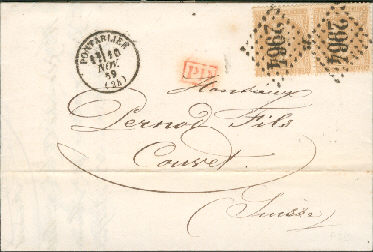 PONTARLIER
NOV.
(24)
P.D.
2964
2964
Monsieur
Pernod Fils
Couvet
Suisse